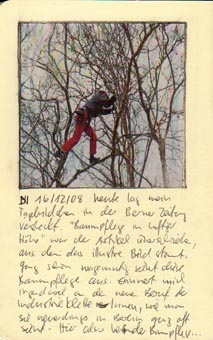 DI 16/12/08 heute lag mein
Tagebildchen in der Berner Zeitung
versteckt. "Baumpflege in luftiger
Höhe" war der Artikel überschrieben,
aus dem das illustre Bild stammt.
Ganz schön vergnügt sieht diese
Baumpflege aus. Erinnert mich
irgendwie an die neue Beruf
Industriekletterinnen, wo man
sie neuerdings in Berlin ganz oft
sieht. Hier also Baumpflege...